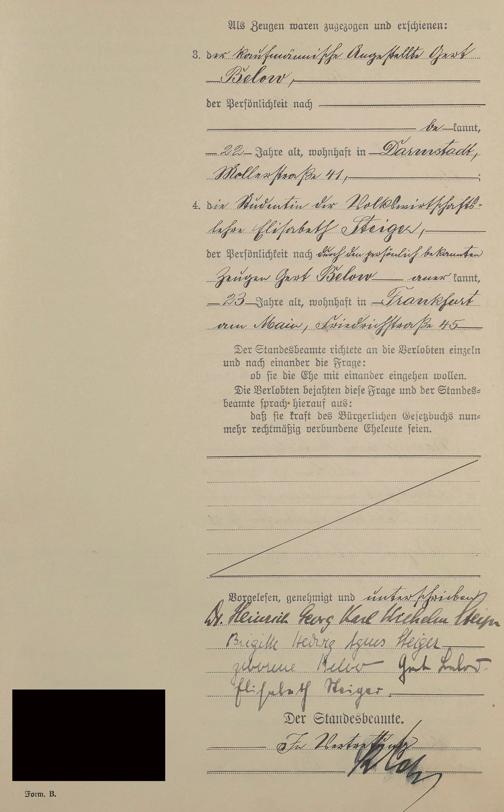 Als Zeugen waren zugezogen und erschienen:
3. der kaufmännische Angestellte Gert
Below,
der Persönlichkeit nach
be kannt,
22 Jahre alt, wohnhaft in Darmstadt,
Mollerstraße 41,;
4. die Studentin der Volkswirtschafts-
lehre Elisabeth Steiger,
der Persönlichkeit nach durch den persönlich bekannten
Zeugen Gert Below aner kannt,
23 Jahre alt, wohnhaft in Frankfurt
am Main, Friedrichstraße 45
Der Standesbeamte richtete an die Verlobten einzeln
und nach einander die Frage:
ob sie die Ehe mit einander eingehen wollen.
Die Verlobten bejahten diese Frage und der Standes-
beamte sprach hierauf aus:
daß sie kraft des Bürgerlichen Gesetzbuchs nun-
mehr rechtmäßig verbundene Eheleute seien.
Vorgelesen, genehmigt und unterschrieben
Dr. Heinrich Georg Karl Wilhelm Steiger
Brigitte Hedwig Agnes Steiger
geborene Below Gert Below.
Elisabeth Steiger.
Der Standesbeamte.
In Vertretung
Form. B.